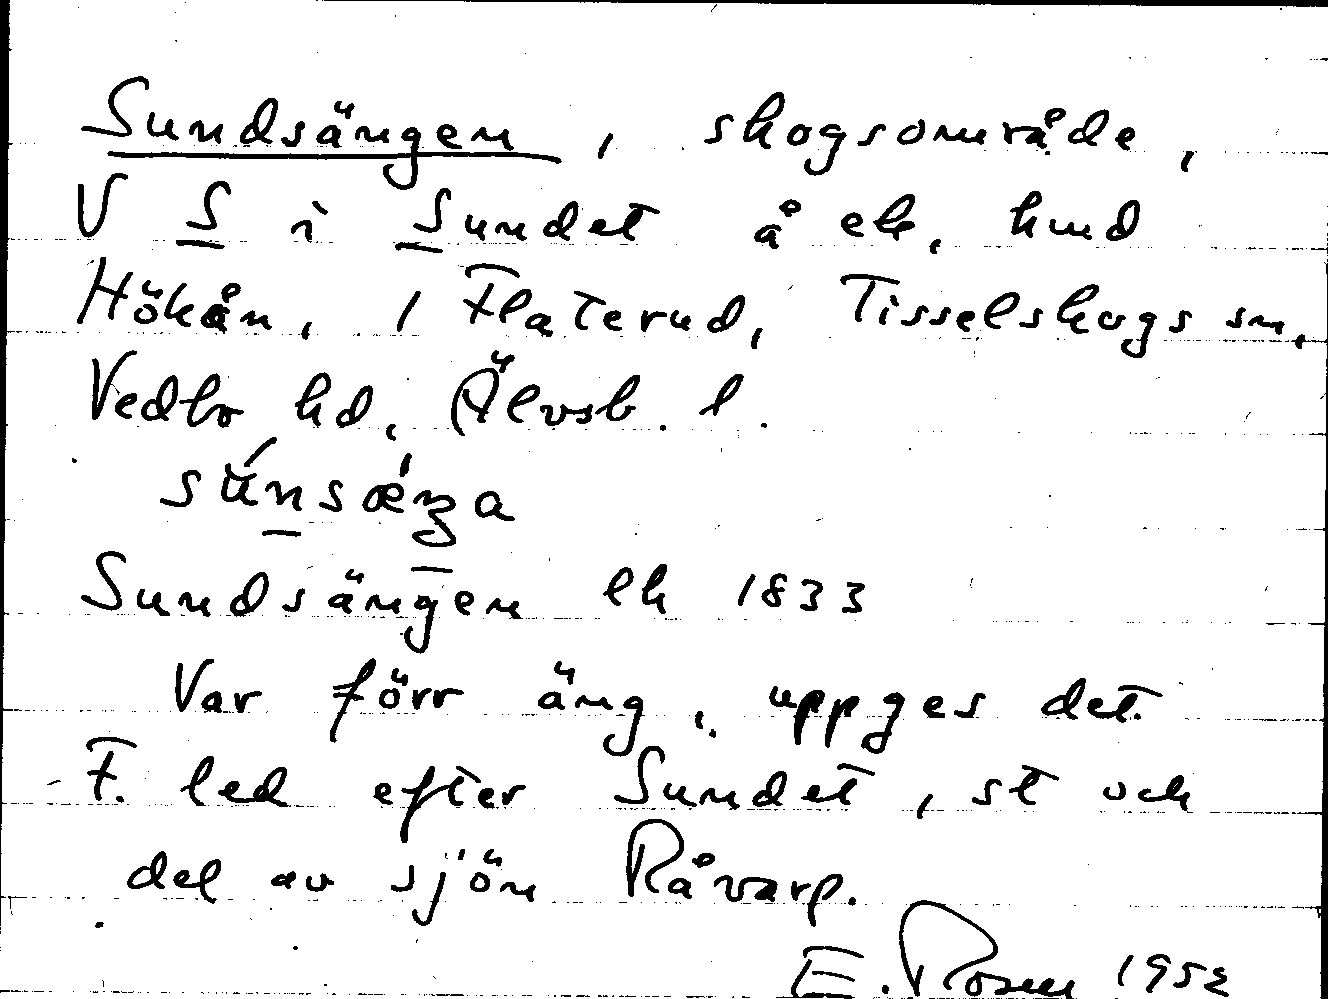 Sundsängen, skogsområde,
V S i Sundet å ek. hmd
Hökån, 1 Flaterud, Tisselskogs sn,
Vedbo hd, Älvsb. l.
Sundsängen lk 1833
Var förr äng, uppges det.
F. led efter Sundet, st och
del av sjön Råvarp.
E. Rosen 1952